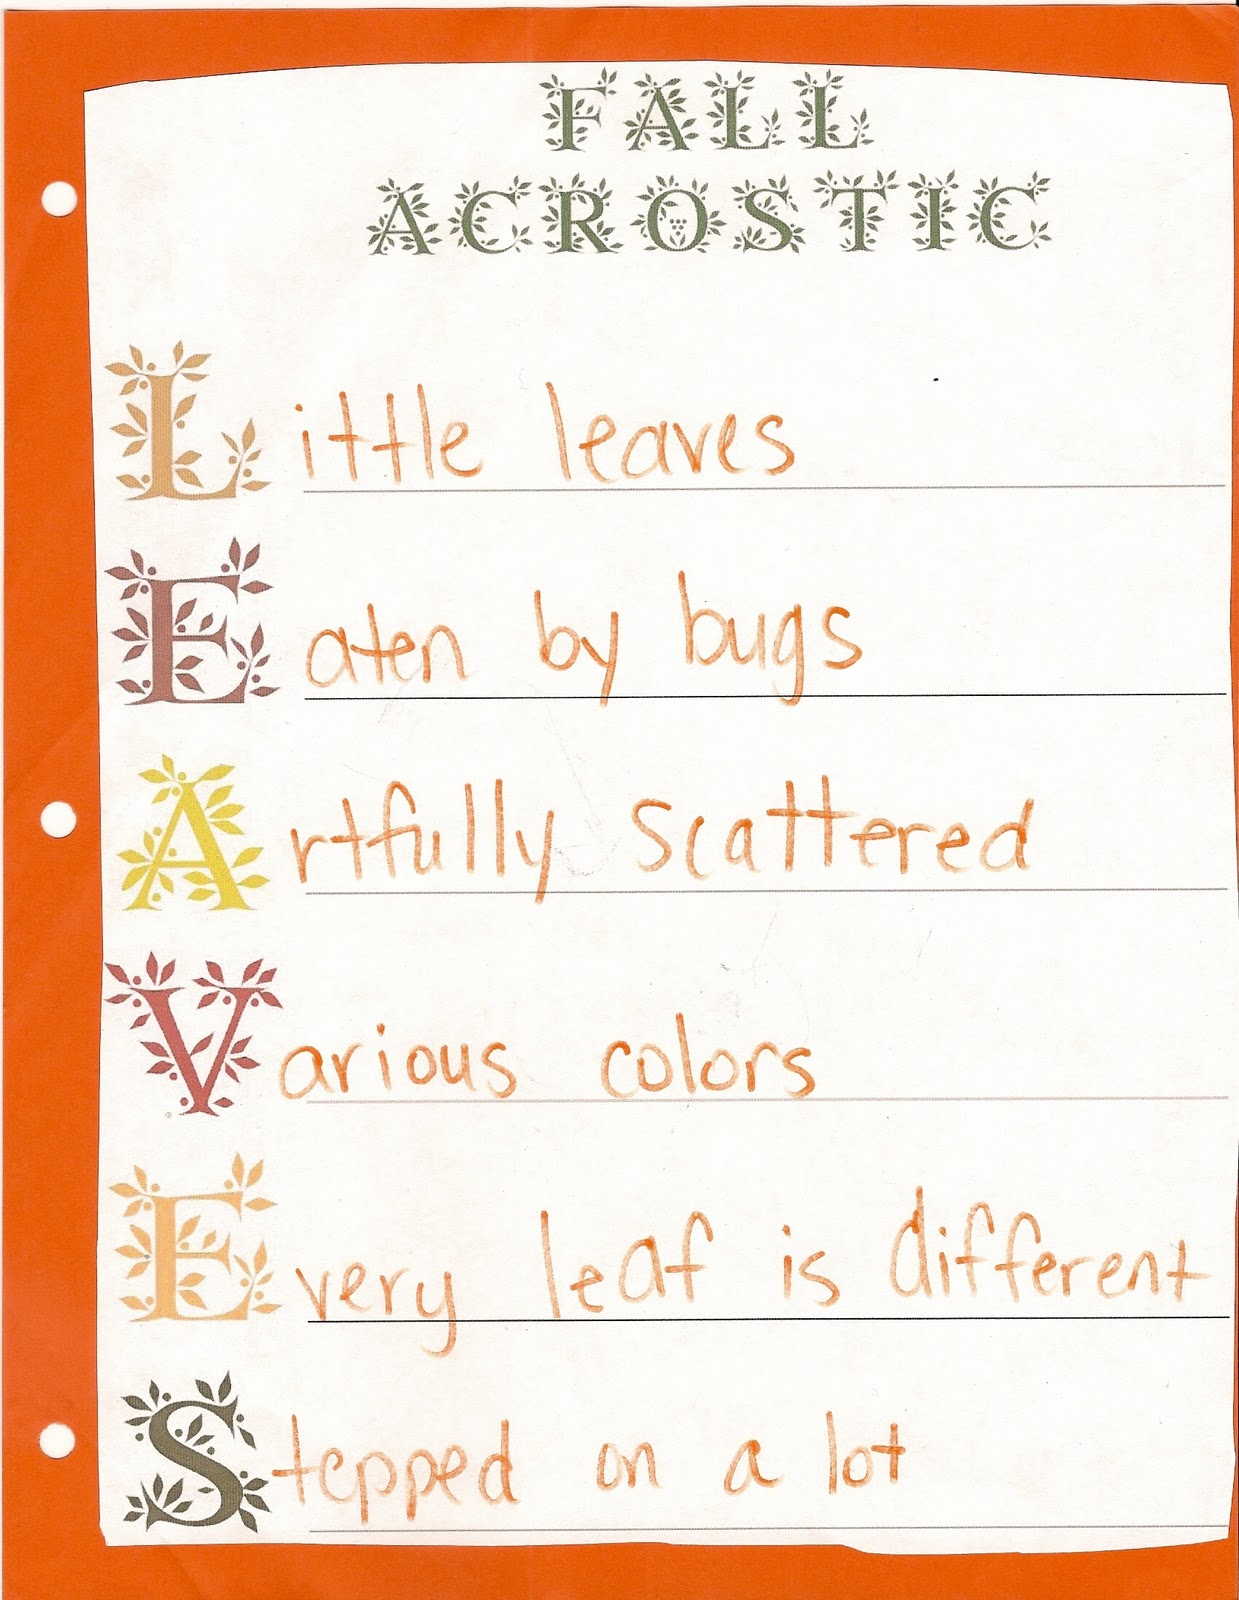 FALL
ACROSTIC
Little leaves
Eaten by bugs
Artfully scattered
Various colors
Every leaf is different
Stepped on a lot